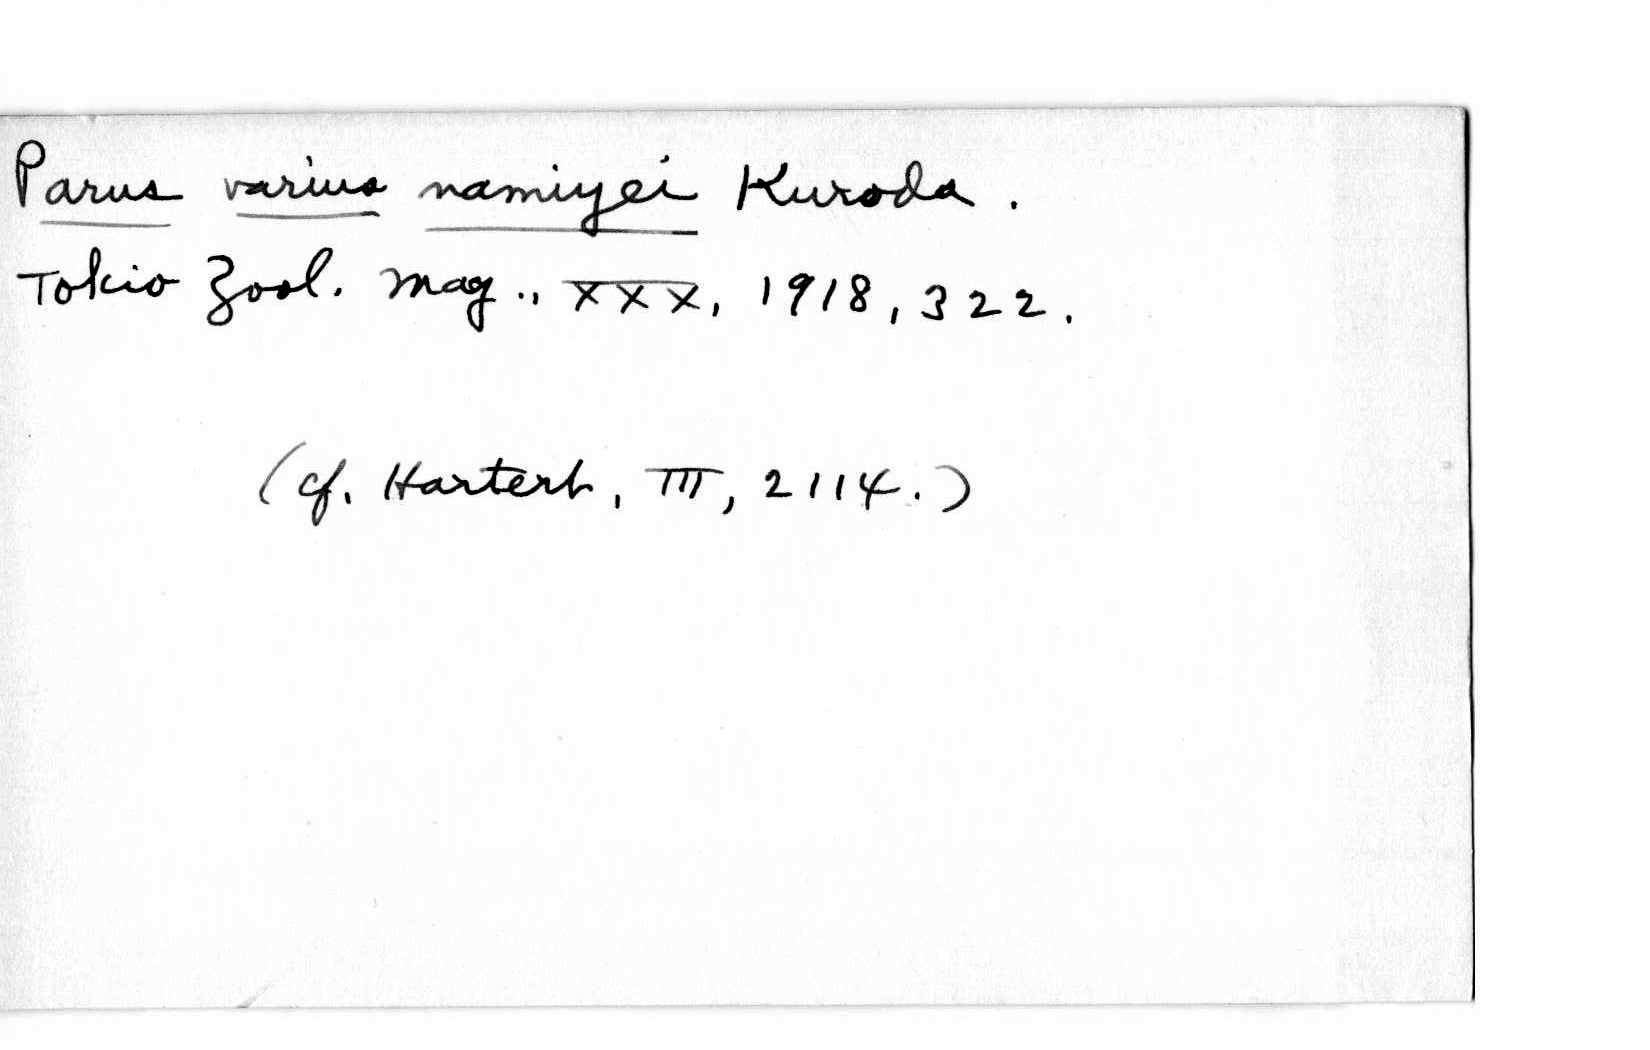 Parus varius namiyei Kuroda.
Tokio Zool. Mag., XXX, 1918, 322.
(cf. Hartert, III, 2114.)